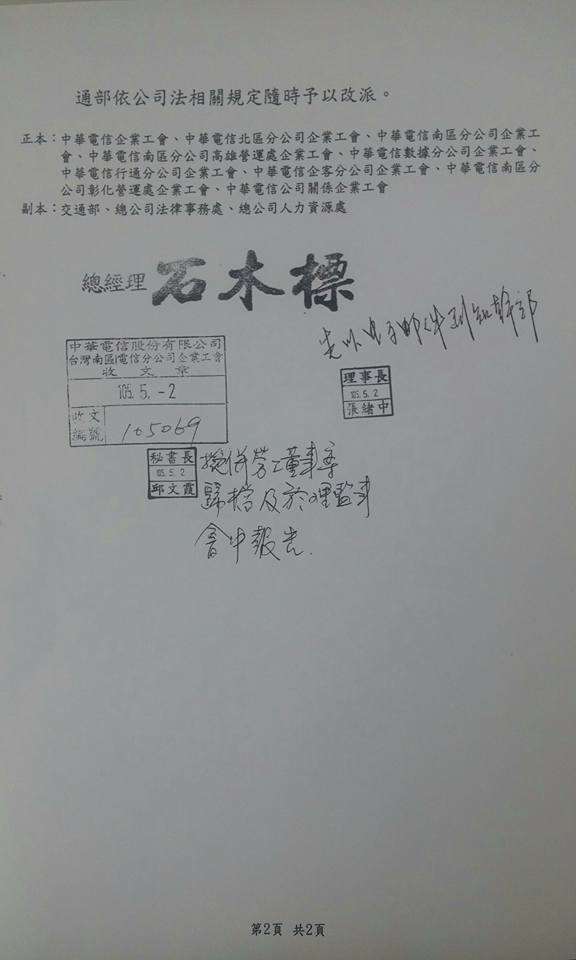 通部依公司法相關規定隨時予以改派。
正本：中華電信企業工會、中華電信北區分公司企業工會、中華電信南區分公司企業工
會、中華電信南區分公司高雄營運處企業工會、中華電信數據分公司企業工會、
中華電信行通分公司企業工會、中華電信企客分公司企業工會、中華電信南區分
公司彰化營運處企業工會、中華電信公司關係企業工會
副本：交通部、總公司法律事務處、總公司人力資源處
總經理 石木標
先以電子郵件到知幹部
中華電信股份有限公司
台灣南區電信分公司企業工會
收文章
105. 5. -2
收文
編號 105069
理事長
105. 5. 2
張緒中
秘書長
105. 5. 2
邱文霞
擬併勞工董事案
歸檔及於理監事
會中報告.
第2頁 共2頁